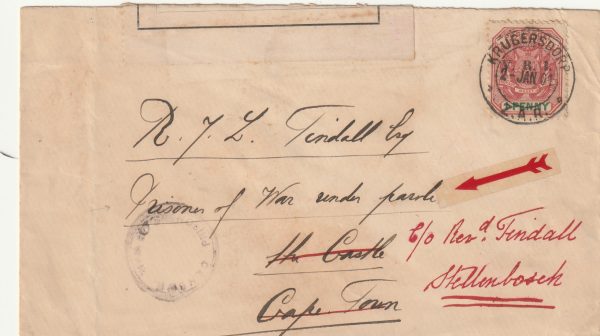 KRUGERSDORP
2-JAN 01
Z.A.R.
PENNY
R. J. L. Tindall Esq
Prisoner of War under parole
the Castle
Cape Town
C/o Revd. Tindall
Stellenbosch